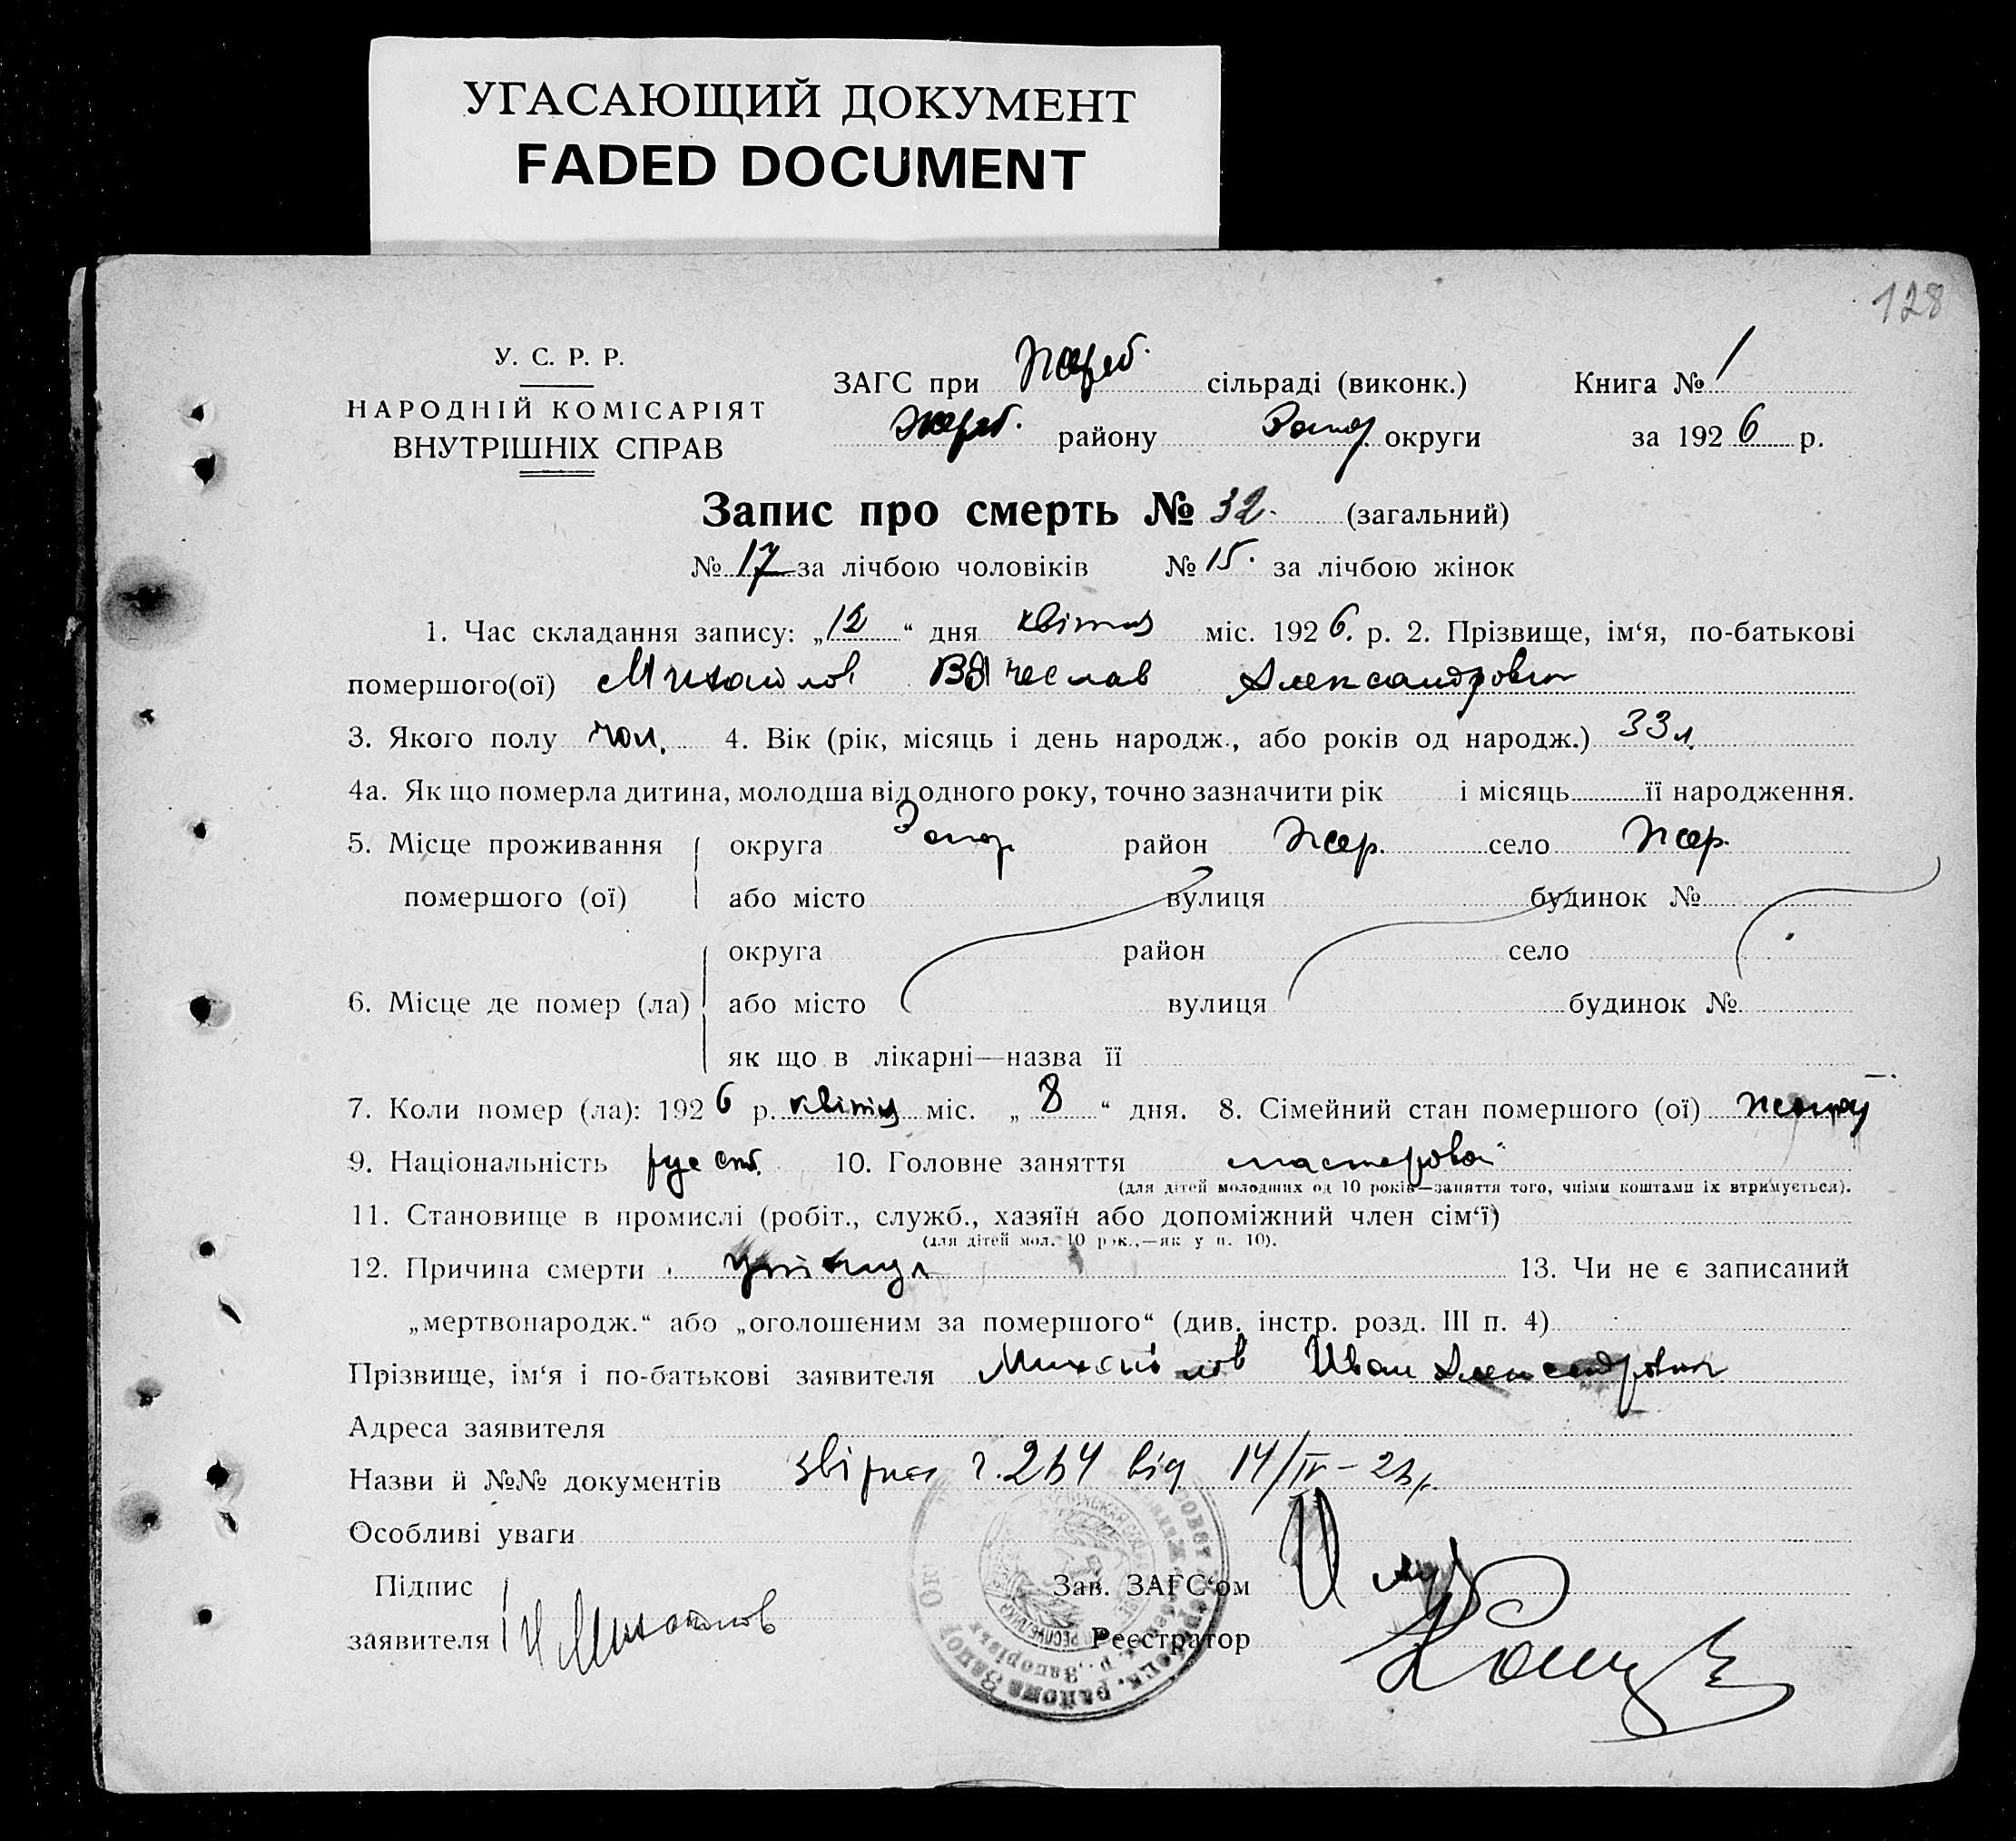 УГАСАЮЩИЙ ДОКУМЕНТ
FADED DOCUMENT
128
У. С. Р. Р.
НАРОДНІЙ КОМІСАРІЯТ
ВНУТРІШНІХ СПРАВ
ЗАГС при Жереб. сільраді (виконк.) Книга № 1
Жереб. району Запор округи за 1926 р.
Запис про смерть № 32. (загальний)
№ 17 за лічбою чоловіків № 15. за лічбою жінок
1. Час складання запису: „12“ дня квітня міс. 1926. р. 2. Прізвище, ім‘я, по-батькові
помершого(ої) Михайлов Вячеслав Александрович
3. Якого полу чол. 4. Вік (рік, місяць і день народж., або років од народж.) 33 л.
4а. Як що померла дитина, молодша від одного року, точно зазначити рік і місяць її народження.
5. Місце проживання округа Запор район Жер. село Жер.
помершого (ої) або місто вулиця будинок №
округа район село
6. Місце де помер (ла) або місто вулиця будинок №
як що в лікарні—назва її
7. Коли помер (ла): 1926 р. квітня міс. „8“ дня. 8. Сімейний стан помершого (ої)
9. Національність 10. Головне заняття мастеровой
(для дітей молодших од 10 років—заняття того, чиїми коштами їх втримується).
11. Становище в промислі (робіт., служб., хазяїн або допоміжний член сім‘ї)
(для дітей мол. 10 рок.,—як у п. 10).
12. Причина смерти 13. Чи не є записаний
„мертвонародж.“ або „оголошеним за помершого“ (див. інстр. розд. III п. 4)
Прізвище, ім‘я і по-батькові заявителя Михайлов Иван Александрович
Адреса заявителя
Назви й №№ документів від 14/IV-
Особливі уваги
Підпис Зав. ЗАГС‘ом
заявителя И Михайлов Реєстратор